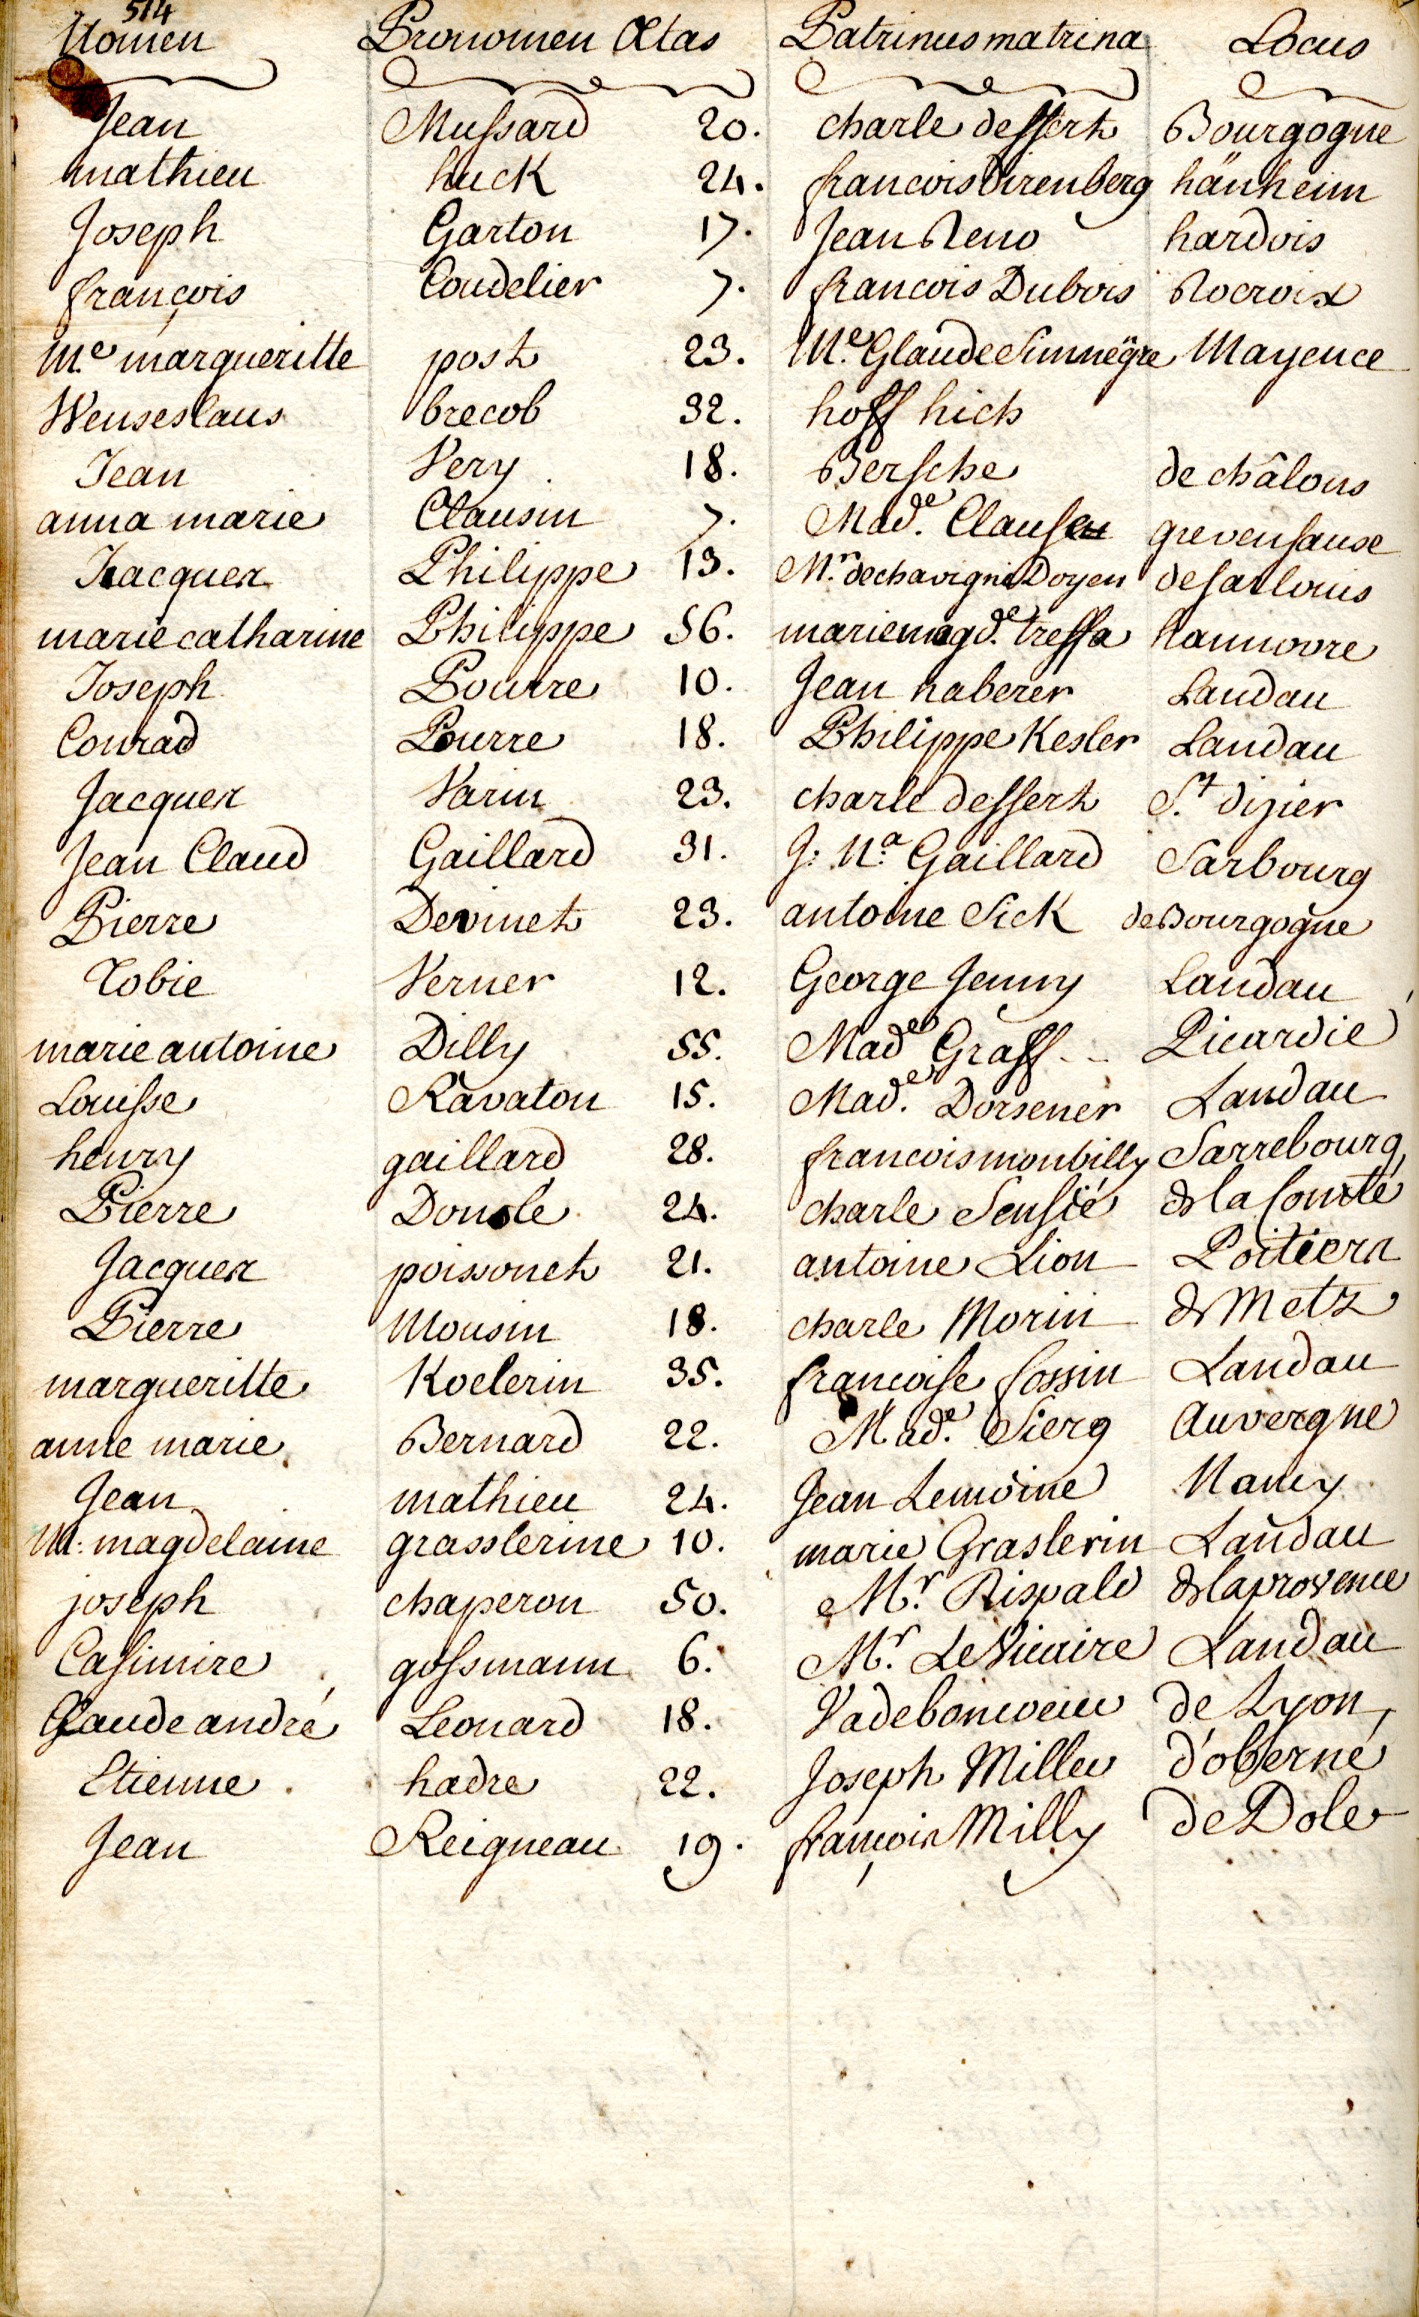 514
Nomen Pronomen Ætas Patrinus matrina Locus
Jean Mussard 20. charle dessert Bourgogne
mathieu huck 24. francois Direnberg hänheim
Joseph Garton 17. Jean Reno hardois
françois Coudelier 7. francois Dubois Rocroix
M.e margueritte post 23. M.e Glaude Mayence
Wenseslaus brecob 32. hoff hich
Jean Very 18. Bersche de châlons
anna marie Clausin 7. Mad.e Clausen grevensause
Jacques Philippe 13. M.r dechavigni Doyen desarlouis
marie catharine Philippe 56. marie magd.e tressa hannovre
Joseph Pourre 10. Jean haberer Landau
Conrad Pourre 18. Philippe Kesler Landau
Jacques Varin 23. charle dessert S.t dizier
Jean Claud Gaillard 31. J: N.a Gaillard Sarbourg
Pierre Devinet 23. antoine Sick de Bourgogne
Tobie Verner 12. George Jenny Landau
marie antoine Dilly 55. Made Graff Picardie
Louisse Ravaton 15. Mad.e Dorsener Landau
henry gaillard 28. francois monbilly Sarrebourg
Pierre Donole 24. charle Sensié de la Comté
Jacques poissonet 21. antoine Lion Poitiers
Pierre Mousin 18. charle Morin de Metz
margueritte Koelerin 35. francoise fossin Landau
anne marie Bernard 22. Mad.e Sierg Auvergne
Jean mathieu 24. Jean Lemoine Nancy
M: magdelaine grasslerine 10. marie Graslerin Landau
joseph chaperon 50. M.r Rispald de la provence
Casimire gossmann 6. M.r Le Vicaire Landau
Claude andré Leonard 18. Vadeboncoeur de Lyon
Etienne hadre 22. Joseph Miller d'oberné
Jean Reigneau 19. françois Milly de Dole